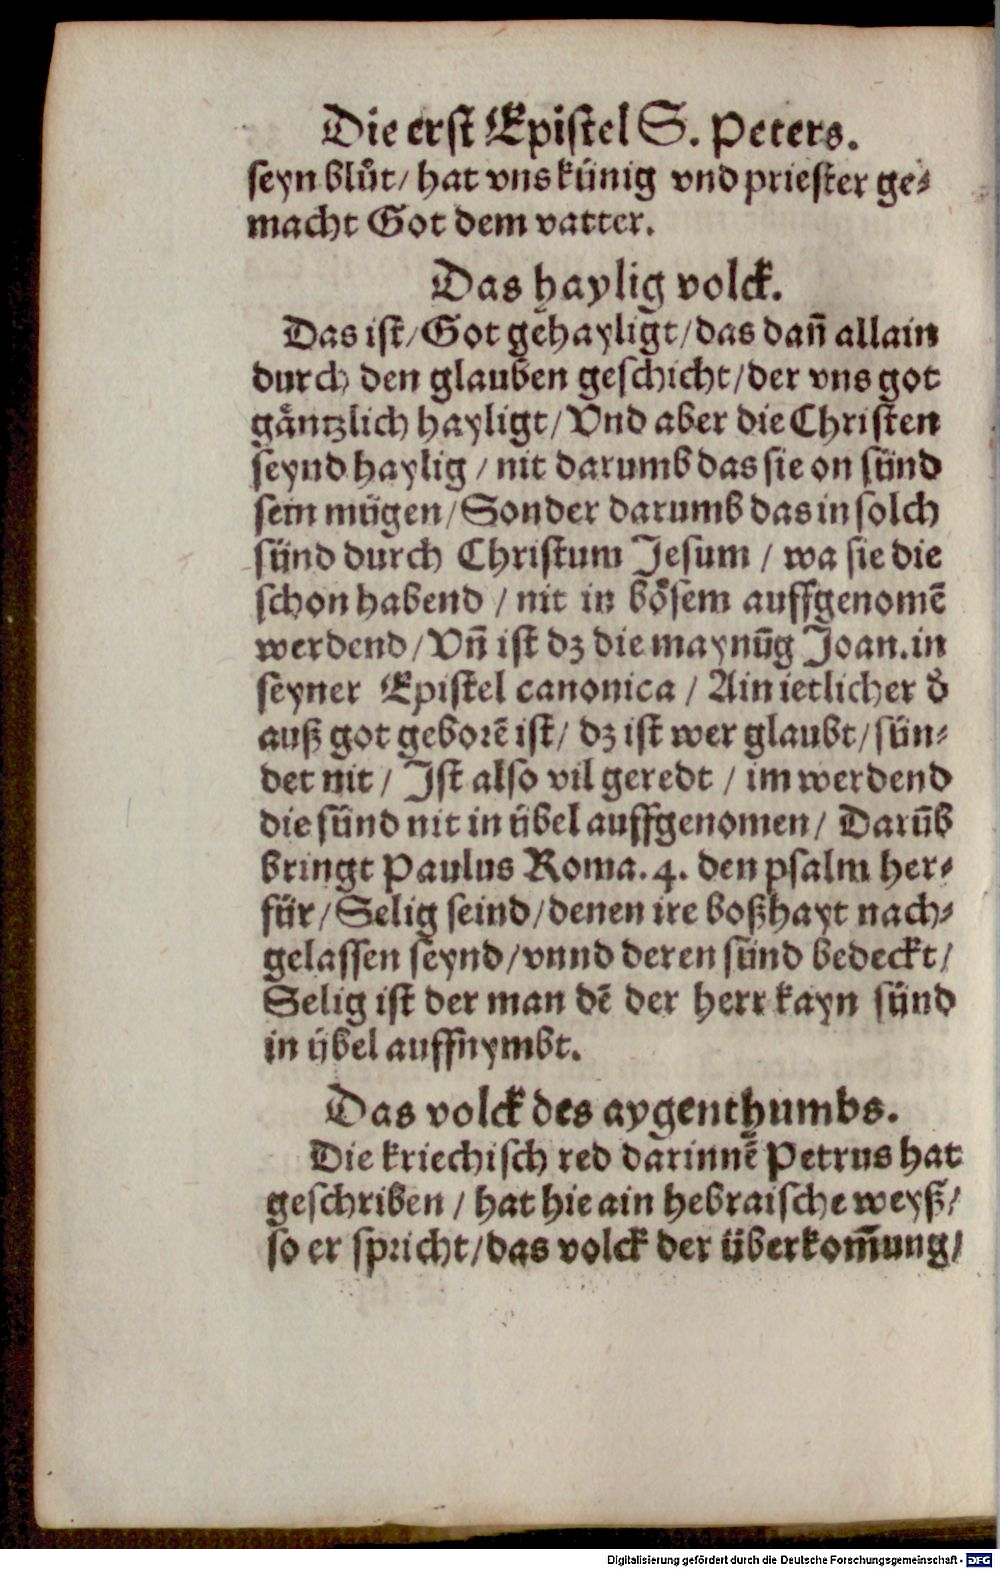 Die erst Epistel S. Peters.
seyn blůt/ hat vns künig vnd priester ge⸗
macht Got dem vatter.
Das haylig volck.
Das ist/ Got gehayligt/ das dañ allain
durch den glauben geschicht/ der vns got
gäntzlich hayligt/ Vnd aber die Christen
seynd haylig / nit darumb das sie on sünd
sein mügen/ Sonder darumb das in solch
sünd durch Christum Jesum / wa sie die
schon habend / nit in bösem auffgenomē
werdend/ Vñ ist dz die maynūg Joan. in
seyner Epistel canonica / Ain ietlicher d̕
auß got geborē ist/ dz ist wer glaubt/ sün⸗
det nit / Ist also vil geredt / im werdend
die sünd nit in übel auffgenomen/ Darūb
bringt Paulus Roma. 4. den psalm her⸗
für/ Selig seind/ denen ire boßhayt nach⸗
gelassen seynd/ vnnd deren sünd bedeckt/
Selig ist der man dē der herr kayn sünd
in übel auffnymbt.
Das volck des aygenthumbs.
Die kriechisch red darinnē Petrus hat
geschriben / hat hie ain hebraische weyß/
so er spricht/ das volck der überkom̄ung/
Digitalisierung gefördert durch die Deutsche Forschungsgemeinschaft - DFG